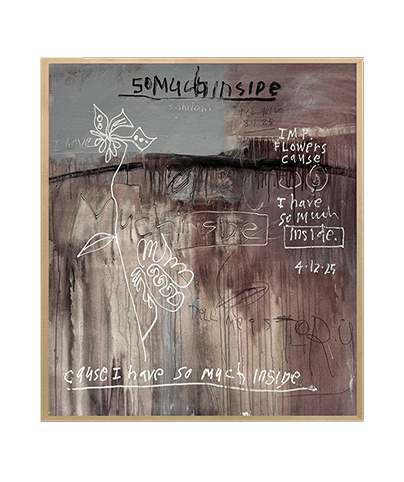 so much inside
I have
IMP.
FLOWERS
cause
I have
so much
inside.
Much inside
4·12·25
TELL ME
cause I have so much inside